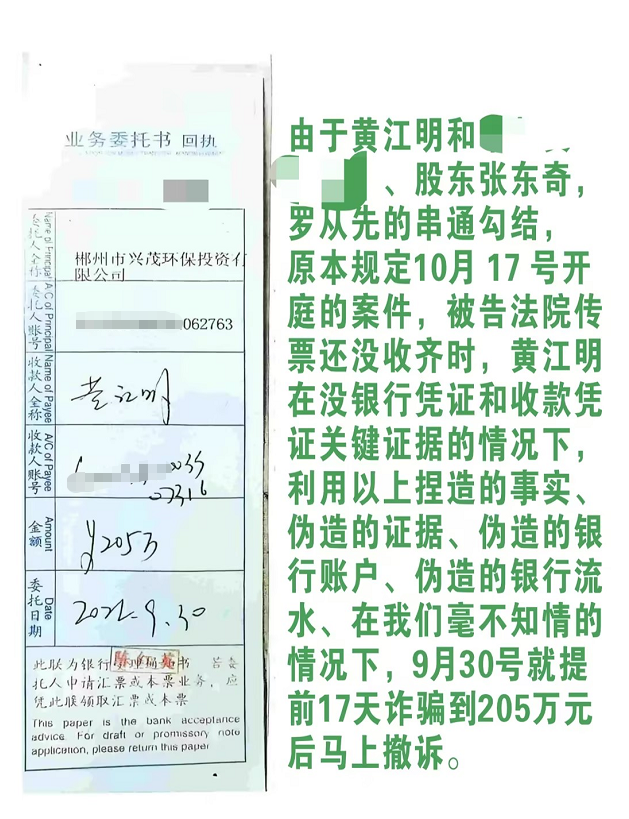 业务委托书 回执
委托人全称
Name of Principal
郴州市兴茂环保投资有
限公司
委托人账号
A/C of Principal
062763
收款人全称
Name of Payee
黄江明
收款人账号
A/C of Payee
0035
02316
金额
Amount
¥205万
委托日期
Date
2022.9.30
此联为银行 书 若委
托人申请汇票或本票业务，应
凭此联领取汇票或本票
This paper is the bank acceptance
advice. For draft or promissory note
application, please return this paper
由于黄江明和
、股东张东奇，
罗从先的串通勾结，
原本规定10月 17 号开
庭的案件，被告法院传
票还没收齐时，黄江明
在没银行凭证和收款凭
证关键证据的情况下，
利用以上捏造的事实、
伪造的证据、伪造的银
行账户、伪造的银行流
水、在我们毫不知情的
情况下，9月30号就提
前17天诈骗到205万元
后马上撤诉。